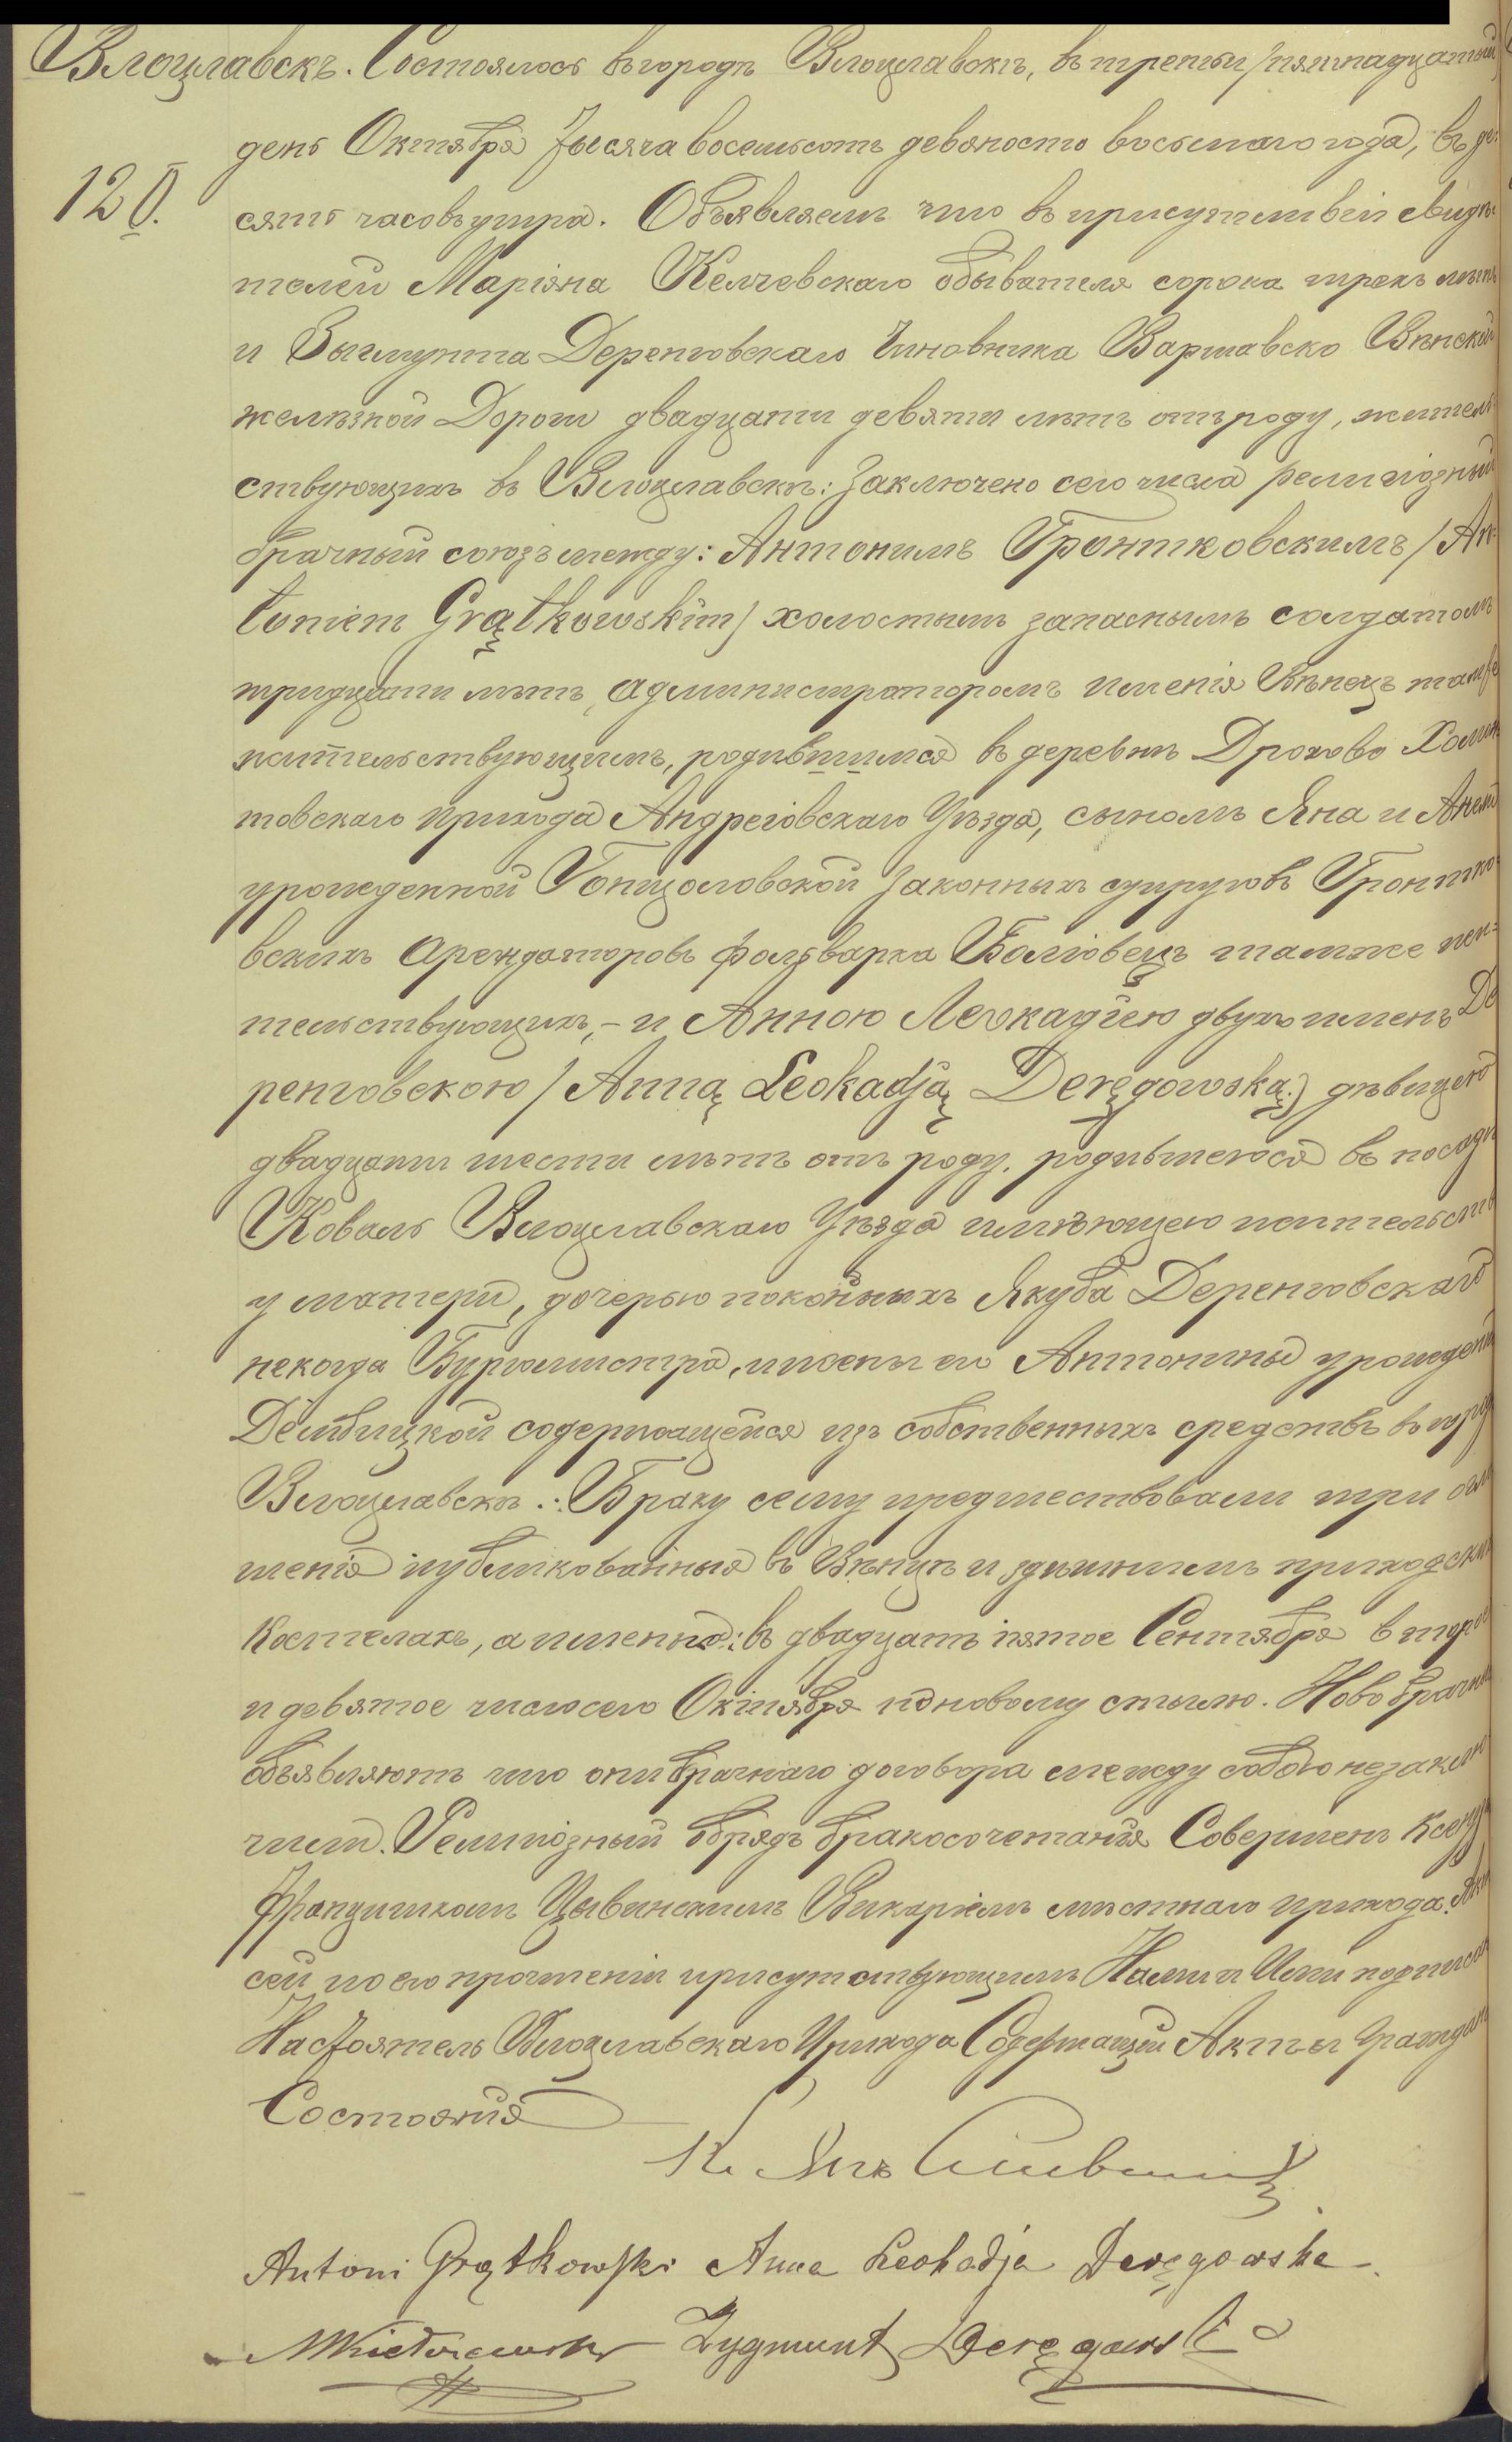 Влоцлавскъ. Состоялось въ городѣ Влоцлавскѣ, въ третьи /пятнадцатый/
день Октября Тысяча восемьсотъ девяносто восьмаго года, въ де-
120. сять часовъ утра. Объявляемъ что въ присутствіи свидѣ-
телей Маріяна Келчевскаго обывателя сорока трехъ лѣтъ
и Зыгмунта Деренговскаго Чиновника Варшавско Вѣнской
желѣзной Дороги двадцати девяти лѣтъ отъ роду, житель-
ствующихъ въ Влоцлавскѣ: Заключено сего числа религіозный
брачный союзъ между: Антонимъ Гронтковскимъ /An-
toniem Grątkowskim/ холостымъ запаснымъ солдатомъ
тридцати лѣтъ, администраторомъ имѣнія Вѣнецъ тамже
жительствующимъ, родившимся въ деревнѣ Дрохово Хомен-
товскаго прихода Андреіовскаго Уѣзда, сыномъ Яна и Анели
урожденной законныхъ супруговъ Гронтко-
вскихъ арендаторовъ фольварка тамже жи-
тельствующихъ, – и Анною Леокадіею двухъ именъ Де
ренговскою /Anną Leokadją Deręgowską:) дѣвицею
двадцати шести лѣтъ отъ роду, родившеюся въ посадѣ
Коваль Влоцлавскаго Уѣзда имѣющею жительст
у матери, дочерью покойныхъ Якуба Деренговскаго
некогда Бургомистра, и жены его Антонины урожден
Дембицкой содержащейся изъ собственныхъ средствъ въ гор
Влоцлавскѣ.: Браку сему предшествовали три огла
шенія публикованныя въ Вѣнцѣ и здѣшнимъ приходски
костелахъ, а именно: въ двадцать пятое Сентября второе
и девятое число сего Октября по новому стылю. Новобрачные
объявляютъ что они брачнаго договора между собою не заклю
чили. Религіозный обрядъ бракосочетанія Совершенъ Ксенд
Францишкомъ Цывинскимъ Викаріемъ мѣстнаго прихода. Акт
сей по его прочтеніи присутствующимъ Нами и Ими подписан
Настоятель Влоцлавскаго Прихода Содержащій Акты Граждан
Состоянія
К. Янъ
Antoni Grątkowski Anna Leokadja Deręgowska
MKiełczewski Zygmunt Deręgowski